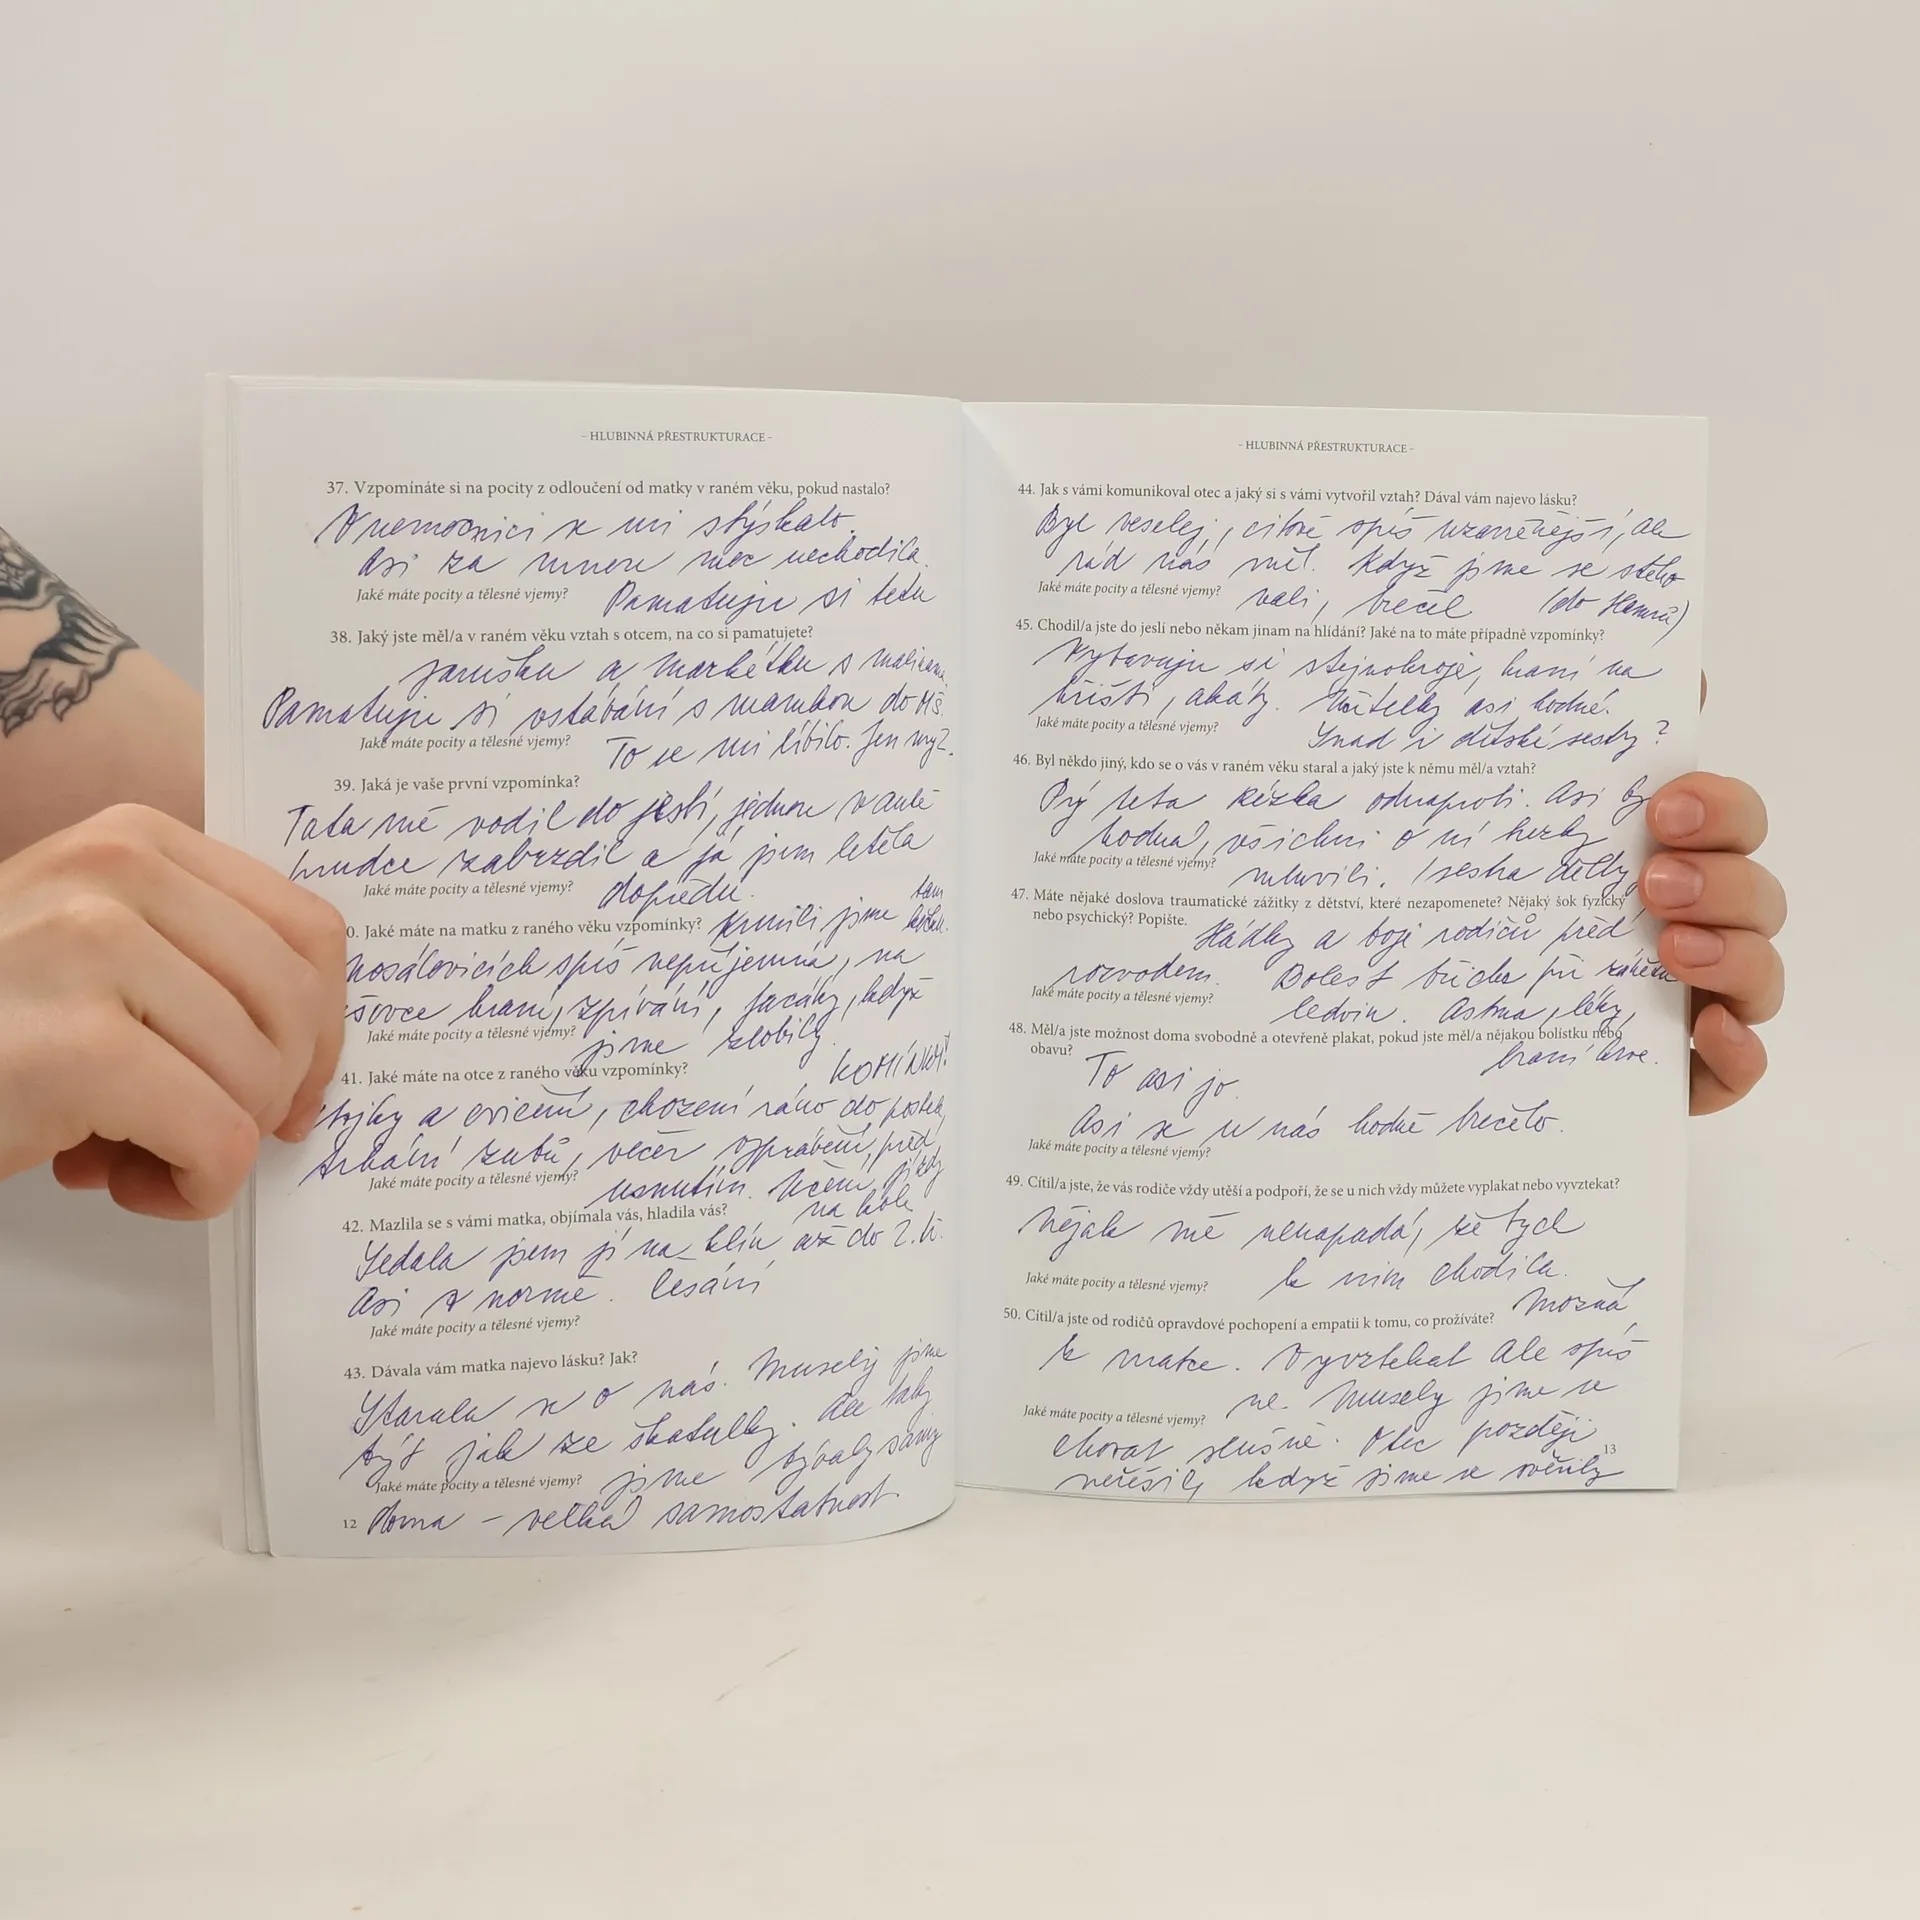 - HLUBINNÁ PŘESTRUKTURACE -
37. Vzpomínáte si na pocity z odloučení od matky v raném věku, pokud nastalo?
V nemocnici se mi stýskalo.
Asi za mnou moc nechodila.
Jaké máte pocity a tělesné vjemy? Pamatuju si tetu
38. Jaký jste měl/a v raném věku vztah s otcem, na co si pamatujete?
Jarušku a Markétku s
Pamatuju si vstávání s mamkou do MŠ.
Jaké máte pocity a tělesné vjemy? To se mi líbilo. Jen my 2.
39. Jaká je vaše první vzpomínka?
Táta mě vodil do jeslí, jednou v autě
prudce zabrzdil a já jsem letěla
Jaké máte pocity a tělesné vjemy? dopředu.
0. Jaké máte na matku z raného věku vzpomínky? jsme tam
spíš nepříjemná, na
hraní, zpívání, facky, když
Jaké máte pocity a tělesné vjemy? jsme zlobily.
41. Jaké máte na otce z raného věku vzpomínky?
a cvičení, chození ráno do postele,
trhání zubů, večer vyprávění před
Jaké máte pocity a tělesné vjemy? usnutím. Učení, jízdy
na kole
42. Mazlila se s vámi matka, objímala vás, hladila vás?
Sedala jsem jí na klín až do 2. tř.
Asi v normě. Česání
Jaké máte pocity a tělesné vjemy?
43. Dávala vám matka najevo lásku? Jak?
Starala se o nás. Musely jsme
být jak ze škatulky. Ale taky
Jaké máte pocity a tělesné vjemy? jsme bývaly samy
12 doma – velká samostatnost
- HLUBINNÁ PŘESTRUKTURACE -
44. Jak s vámi komunikoval otec a jaký si s vámi vytvořil vztah? Dával vám najevo lásku?
Byl veselej, citově spíš uzavřenější, ale
rád nás měl. Když jsme se stěho
Jaké máte pocity a tělesné vjemy? vali, brečel (do Hamrů)
45. Chodil/a jste do jeslí nebo někam jinam na hlídání? Jaké na to máte případně vzpomínky?
Vybavuju si stejnokroje, hraní na
hřišti, akáty. Učitelky asi hodné.
Jaké máte pocity a tělesné vjemy? Snad i dětské sestry?
46. Byl někdo jiný, kdo se o vás v raném věku staral a jaký jste k němu měl/a vztah?
Prý teta odnaproti. Asi by
hodná, všichni o ní hezky
Jaké máte pocity a tělesné vjemy? mluvili.
47. Máte nějaké doslova traumatické zážitky z dětství, které nezapomenete? Nějaký šok fyzický
nebo psychický? Popište. Hádky a boje rodičů před
rozvodem. Bolest břicha při zánětu
Jaké máte pocity a tělesné vjemy? ledvin. Astma, léky,
48. Měl/a jste možnost doma svobodně a otevřeně plakat, pokud jste měl/a nějakou bolístku nebo
obavu? To asi jo. braní krve.
Asi se u nás hodně brečelo.
Jaké máte pocity a tělesné vjemy?
49. Cítil/a jste, že vás rodiče vždy utěší a podpoří, že se u nich vždy můžete vyplakat nebo vyvztekat?
Nějak mě nenapadá, že bych
Jaké máte pocity a tělesné vjemy? k nim chodila.
50. Cítil/a jste od rodičů opravdové pochopení a empatii k tomu, co prožíváte? Možná
k matce. Vyvztekat ale spíš
Jaké máte pocity a tělesné vjemy? ne. Musely jsme se
chovat slušně. Otec později
13
neřešil, když jsme se svěřily